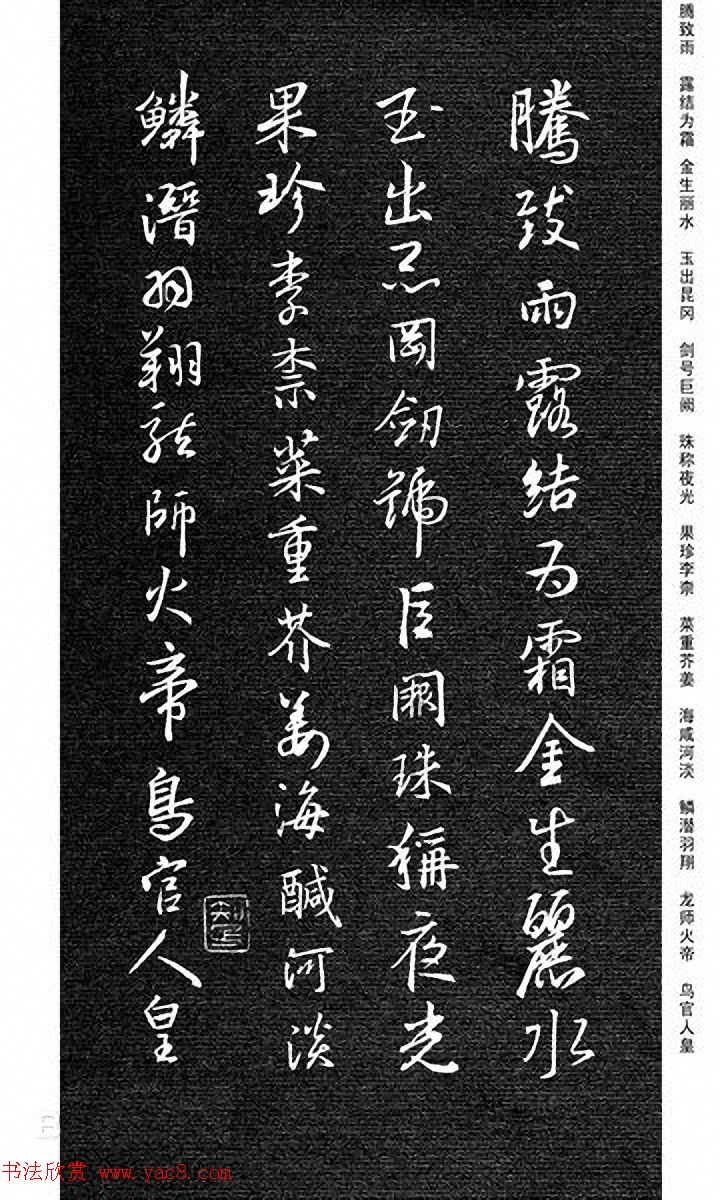 腾致雨 露结为霜 金生丽水 玉出昆冈 剑号巨阙 珠称夜光 果珍李柰 菜重芥姜 海咸河淡 鳞潜羽翔 龙师火帝 鸟官人皇
騰致雨露結為霜金生麗水
玉出崑岡劒號巨闕珠稱夜光
果珍李柰菜重芥薑海鹹河淡
鱗潛羽翔龍師火帝鳥官人皇
书法欣赏 www.yac8.com